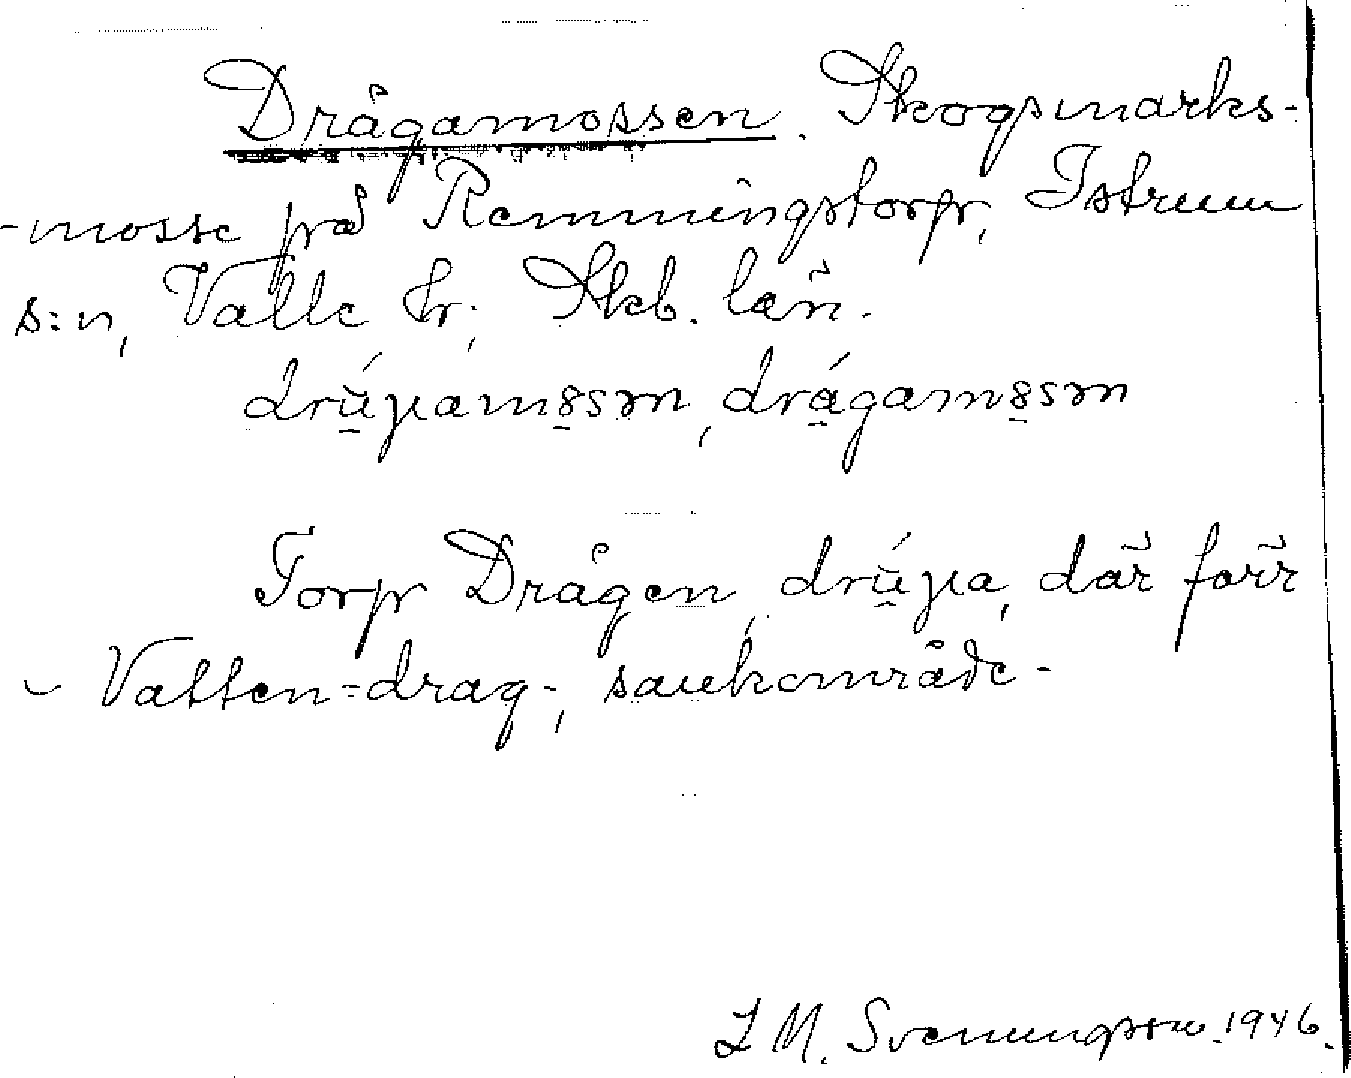 Drågamossen. Skogsmarks-
-mosse på Remmingstorp, Istrum
s:n, Valle hr; Skb. län.
drågamossən, drágamossən
Torp Drågen, där förr
Vatten-drag-, sankområde-
L M. Svenungsson. 1946.